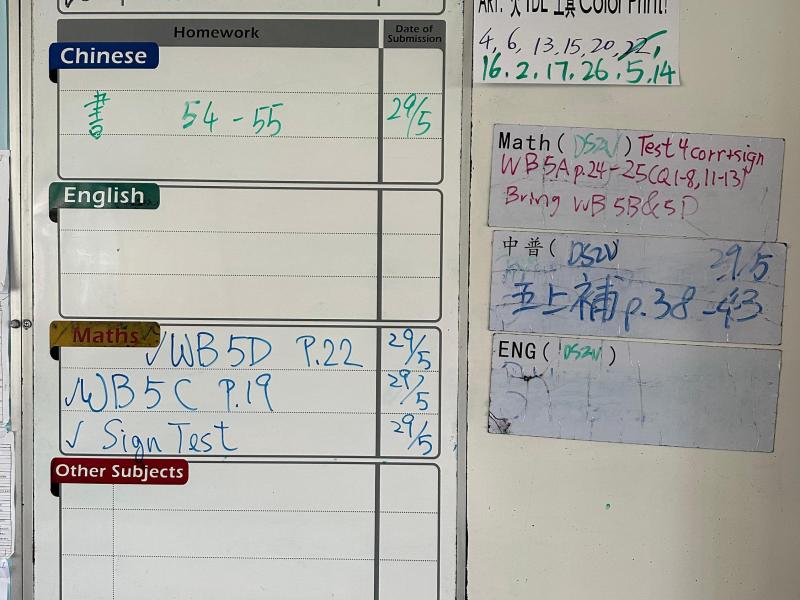 Homework
Date of Submission
Chinese
書 54-55 29/5
English
Maths
✓WB 5D P.22 29/5
✓WB 5C P.19 29/5
✓ Sign Test 29/5
Other Subjects
Color Print!
4, 6, 13, 15, 20, 22,
16. 2. 17. 26. 5. 14
Math( DS2V ) Test 4 corr+sign
WB 5A p.24-25(Q1-8, 11-13)
Bring WB 5B&5D
中普( DS2V 29/5
五上補 p.38
ENG( DS2V )